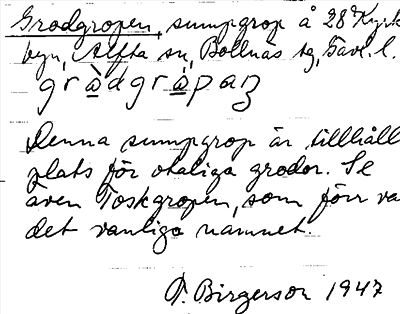 Grodgropen, sumpgrop å 28² Kyrk
byn, Alfta sn, Bollnäs tg, Gävl. l.
gròdgrápaɳ
Denna sumpgrop är tillhåll
plats för otaliga grodor. Se
även Toskgropen, som förr va
det vanliga namnet.
P. Birgerson 1947